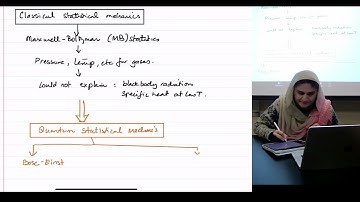 Classical statistical mechanics
Maxwell-Boltzman (MB) statistics
Pressure, temp, etc for gases.
Could not explain : blackbody radiation
Specific heat at low T.
Quantum Statistical Mechanics
Bose-Einst